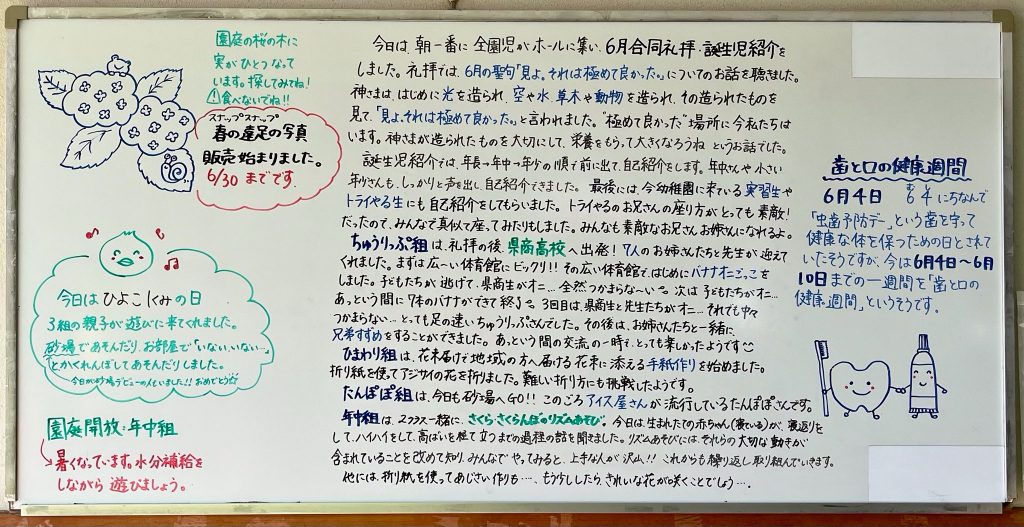 園庭の桜の木に
実がひとつなって
います。探してみてね!
食べないでね!!
スナップスナップ
春の遠足の写真
販売始まりました。
6/30 までです
今日は ひよこぐみの日
3組の親子が遊びに来てくれました。
砂場であそんだり、お部屋で「いない、いない…」
とかくれんぼしてあそんだりしました。
今日が砂場デビューの人もいました!! おめでとう
園庭開放:年中組
暑くなっています。水分補給を
しながら 遊びましょう。
今日は、朝一番に 全園児が ホールに集い、6月合同礼拝・誕生児紹介を
しました。礼拝では、6月の聖句「見よ。それは極めて良かった。」についてのお話を聴きました。
神さまは、はじめに光を造られ、空や水、草木や動物を造られ、その造られたものを
見て、「見よ、それは極めて良かった。」と言われました。"極めて良かった"場所に今私たちは
います。神さまが造られたものを大切にして、栄養をもらって大きくなろうね というお話でした。
誕生児紹介では、年長→年中→年少の順で前に出て、自己紹介をします。年中さんや小さい
年少さんも、しっかりと声を出し、自己紹介できました。最後には、今幼稚園に来ている実習生や
トライやる生にも自己紹介をしてもらいました。トライやるのお兄さんの座り方がとっても素敵!
だったので、みんなで真似て座ってみたりもしました。みんなも素敵なお兄さんお姉さんになれるよ。
ちゅうりっぷ組は、礼拝の後、県商高校へ出発! 7人のお姉さんたちと先生が迎えて
くれました。まずは広〜い体育館にビックリ!! その広い体育館で、はじめにバナナオニごっこを
しました。子どもたちが逃げて、県商生がオニ… 全然つかまらな〜い 次は 子どもたちがオニ…
あっという間に 7本のバナナができて終了 3回目は県商生と先生たちがオニ… それでも中々
つかまらない… とっても足の速いちゅうりっぷさんでした。その後は、お姉さんたちと一緒に
兄弟すずめをすることができました。あっという間の交流の一時で、とっても楽しかったようです
ひまわり組は、花束届けで地域の方へ届ける花束に添える手紙作りを始めました。
折り紙を使ってアジサイの花を折りました。難しい折り方にも挑戦したようです。
たんぽぽ組は、今日も砂場へGO!! このごろアイス屋さんが流行しているたんぽぽさんです。
年中組は、2クラス一緒に、さくら・さくらんぼのリズムあそび。今日は、生まれたての赤ちゃん(寝ている)が、寝返りを
して、ハイハイをして、高ばいを経て立つまでの過程の話を聞きました。リズムあそびには、それらの大切な動きが
含まれていることを改めて知り、みんなでやってみると、上手な人が沢山!! これからも繰り返し取り組んでいきます。
他には、折り紙を使ってあじさい作りも…、もう少ししたら、きれいな花が咲くことでしょう…。
歯と口の健康週間
6月4日 6 4 にちなんで
「虫歯予防デー」という歯を守って
健康な体を保つための日とされて
いたそうですが、今は6月4日〜6月
10日までの一週間を「歯と口の
健康週間」というそうです。